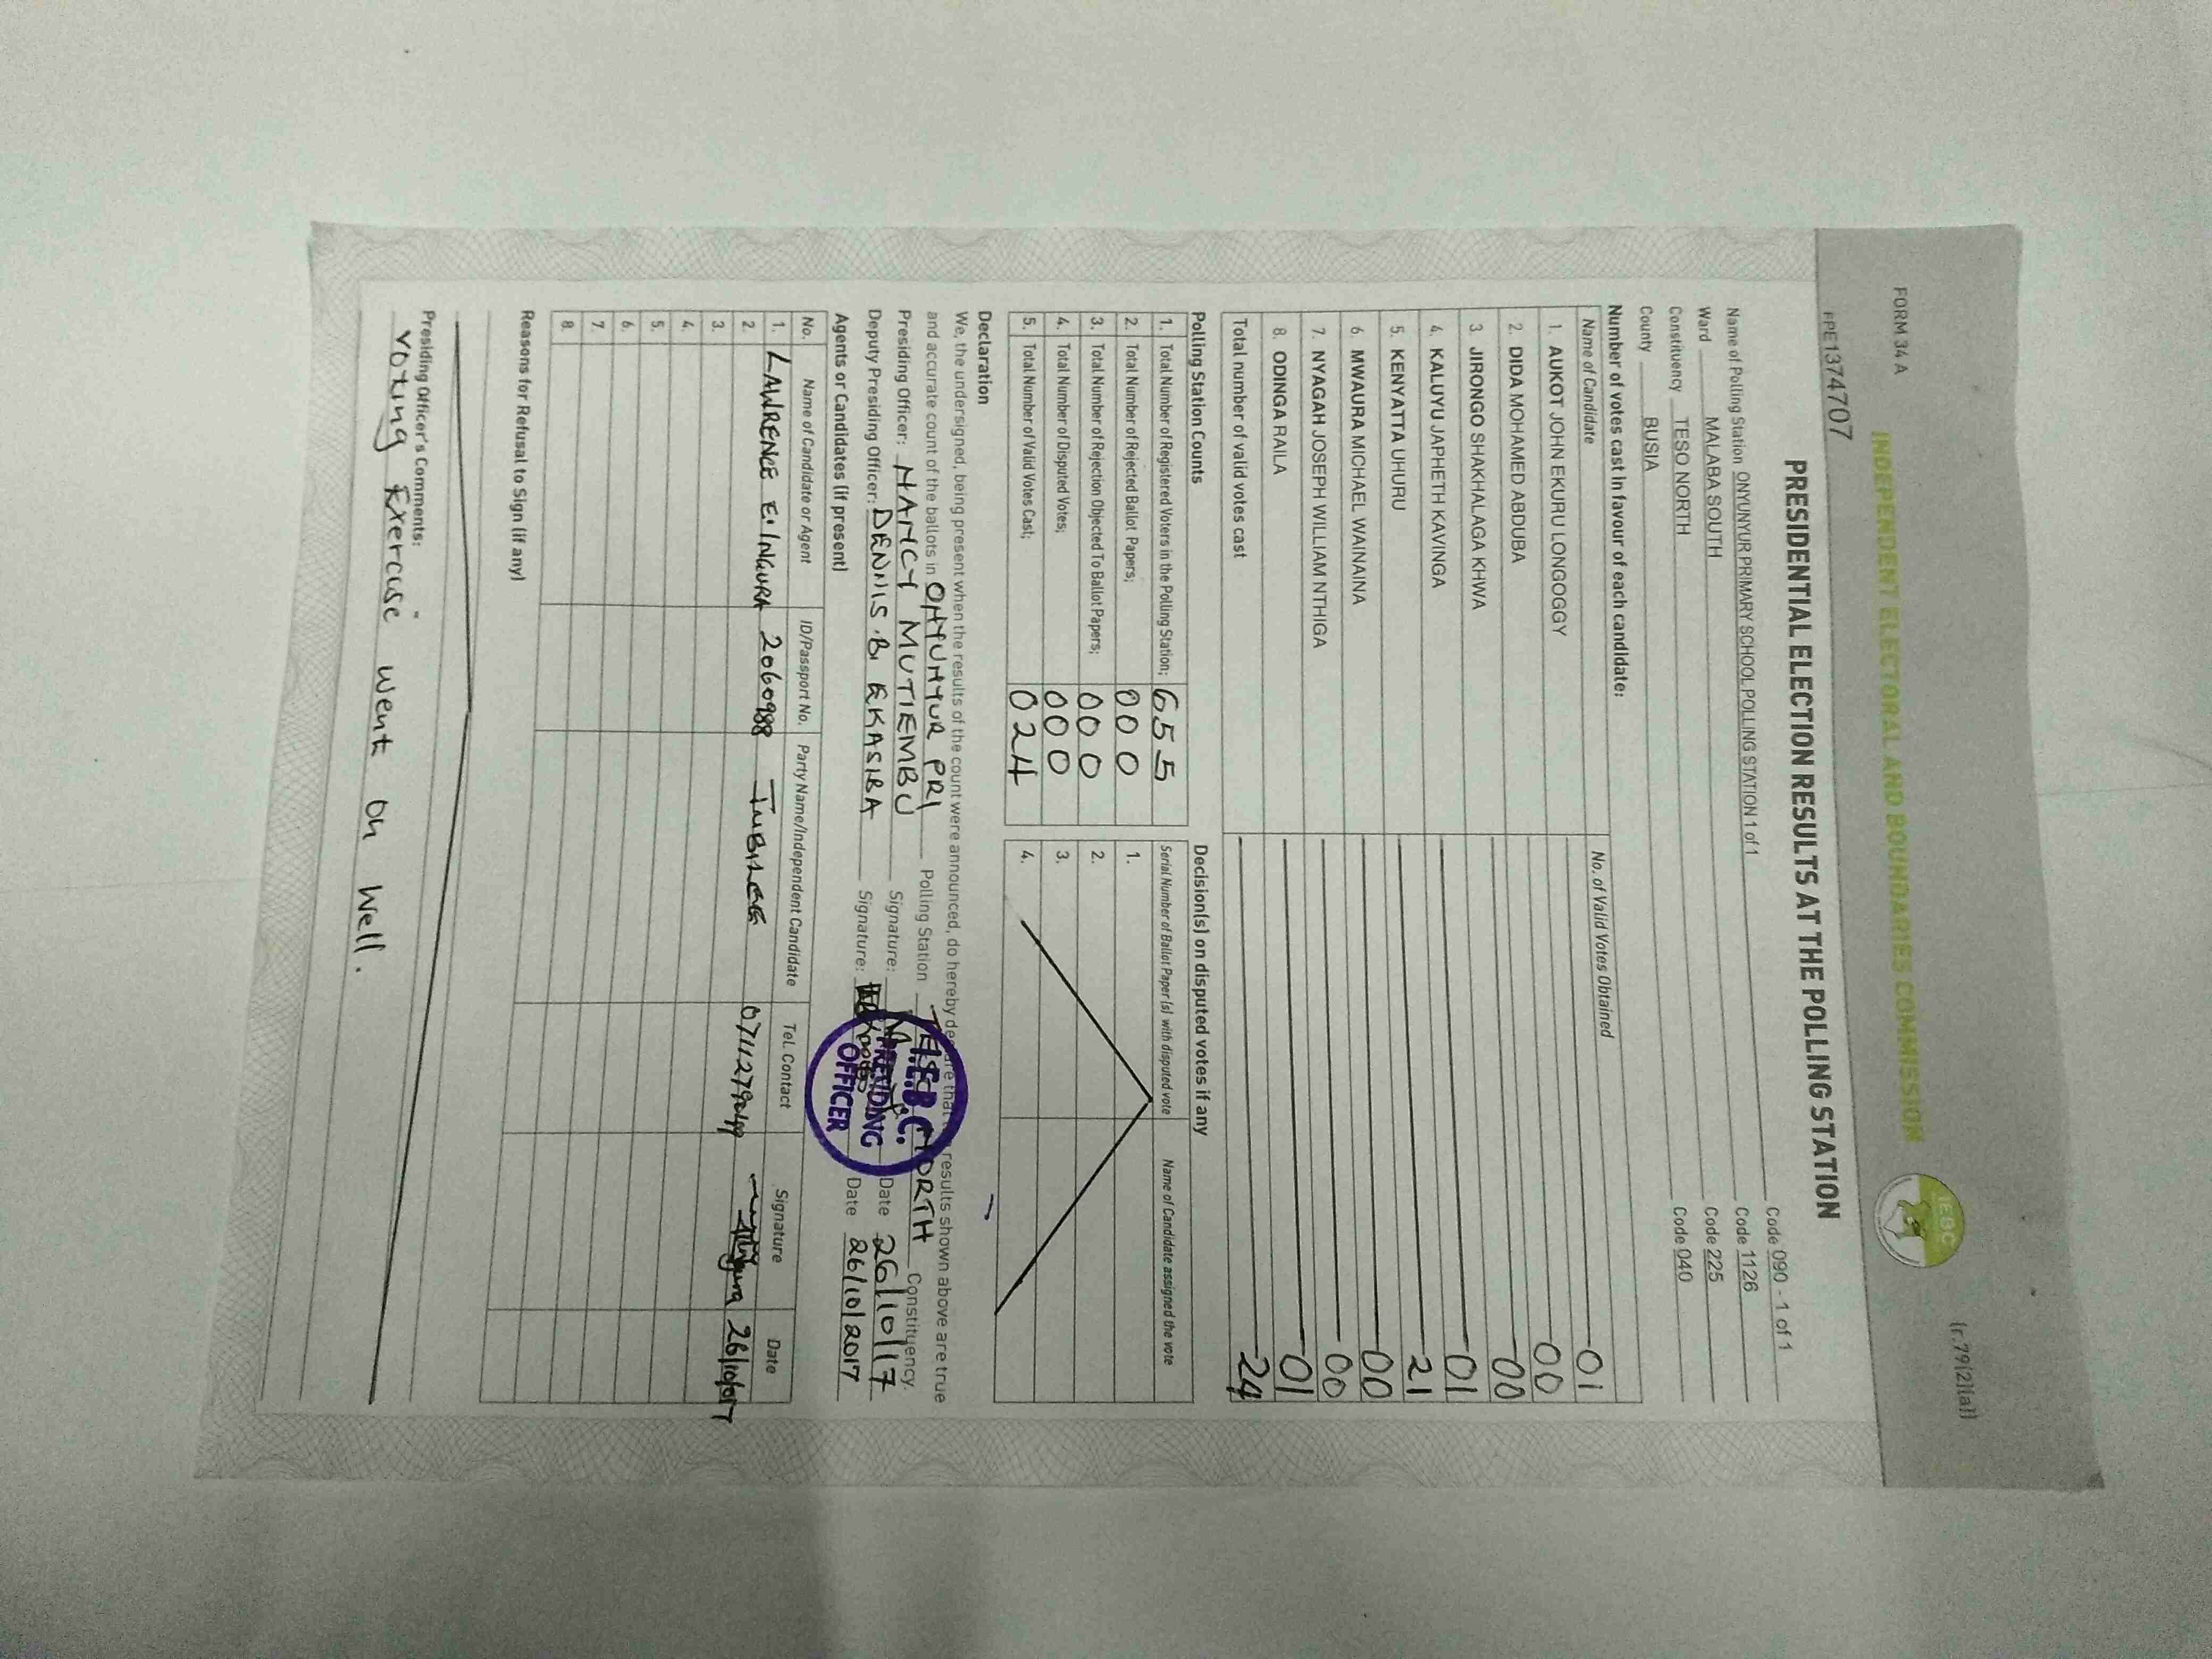 FORM 34 A
(r.79(2)(a))
INDEPENDENT ELECTORAL AND BOUNDARIES COMMISSION
IEBC
PPE1374707
PRESIDENTIAL ELECTION RESULTS AT THE POLLING STATION
Name of Polling Station ONYUNYUR PRIMARY SCHOOL POLLING STATION 1 of 1 Code 090 - 1 of 1
Ward MALABA SOUTH Code 1126
Constituency TESO NORTH Code 225
County BUSIA Code 040
Number of votes cast in favour of each candidate:
Name of Candidate No. of Valid Votes Obtained
1. AUKOT JOHN EKURU LONGOGGY 01
2. DIDA MOHAMED ABDUBA 00
3. JIRONGO SHAKHALAGA KHWA 00
4. KALUYU JAPHETH KAVINGA 01
5. KENYATTA UHURU 21
6. MWAURA MICHAEL WAINAINA 00
7. NYAGAH JOSEPH WILLIAM NTHIGA 00
8. ODINGA RAILA 01
Total number of valid votes cast 24
Polling Station Counts
1. Total Number of Registered Voters in the Polling Station; 655
2. Total Number of Rejected Ballot Papers; 000
3. Total Number of Rejection Objected To Ballot Papers; 000
4. Total Number of Disputed Votes; 000
5. Total Number of Valid Votes Cast; 024
Decision(s) on disputed votes if any
Serial Number of Ballot Paper(s) with disputed vote Name of Candidate assigned the vote
1.
2.
3.
4.
Declaration
We, the undersigned, being present when the results of the count were announced, do hereby declare that the results shown above are true
and accurate count of the ballots in ONYUNYUR PRI Polling Station TESO NORTH Constituency.
Presiding Officer: NANCY MUTIEMBU Signature: Date 26/10/17
Deputy Presiding Officer: DENNIS .B. EKASIBA Signature: Date 26/10/2017
I.E.B.C.
PRESIDING
OFFICER
Agents or Candidates (if present)
No. Name of Candidate or Agent ID/Passport No. Party Name/Independent Candidate Tel. Contact Signature Date
1. LAWRENCE E. INGURA 2060988 JUBILEE 26/10/017
2.
3.
4.
5.
6.
7.
8.
Reasons for Refusal to Sign (if any)
Presiding Officer's Comments:
Voting Exercise went on Well.